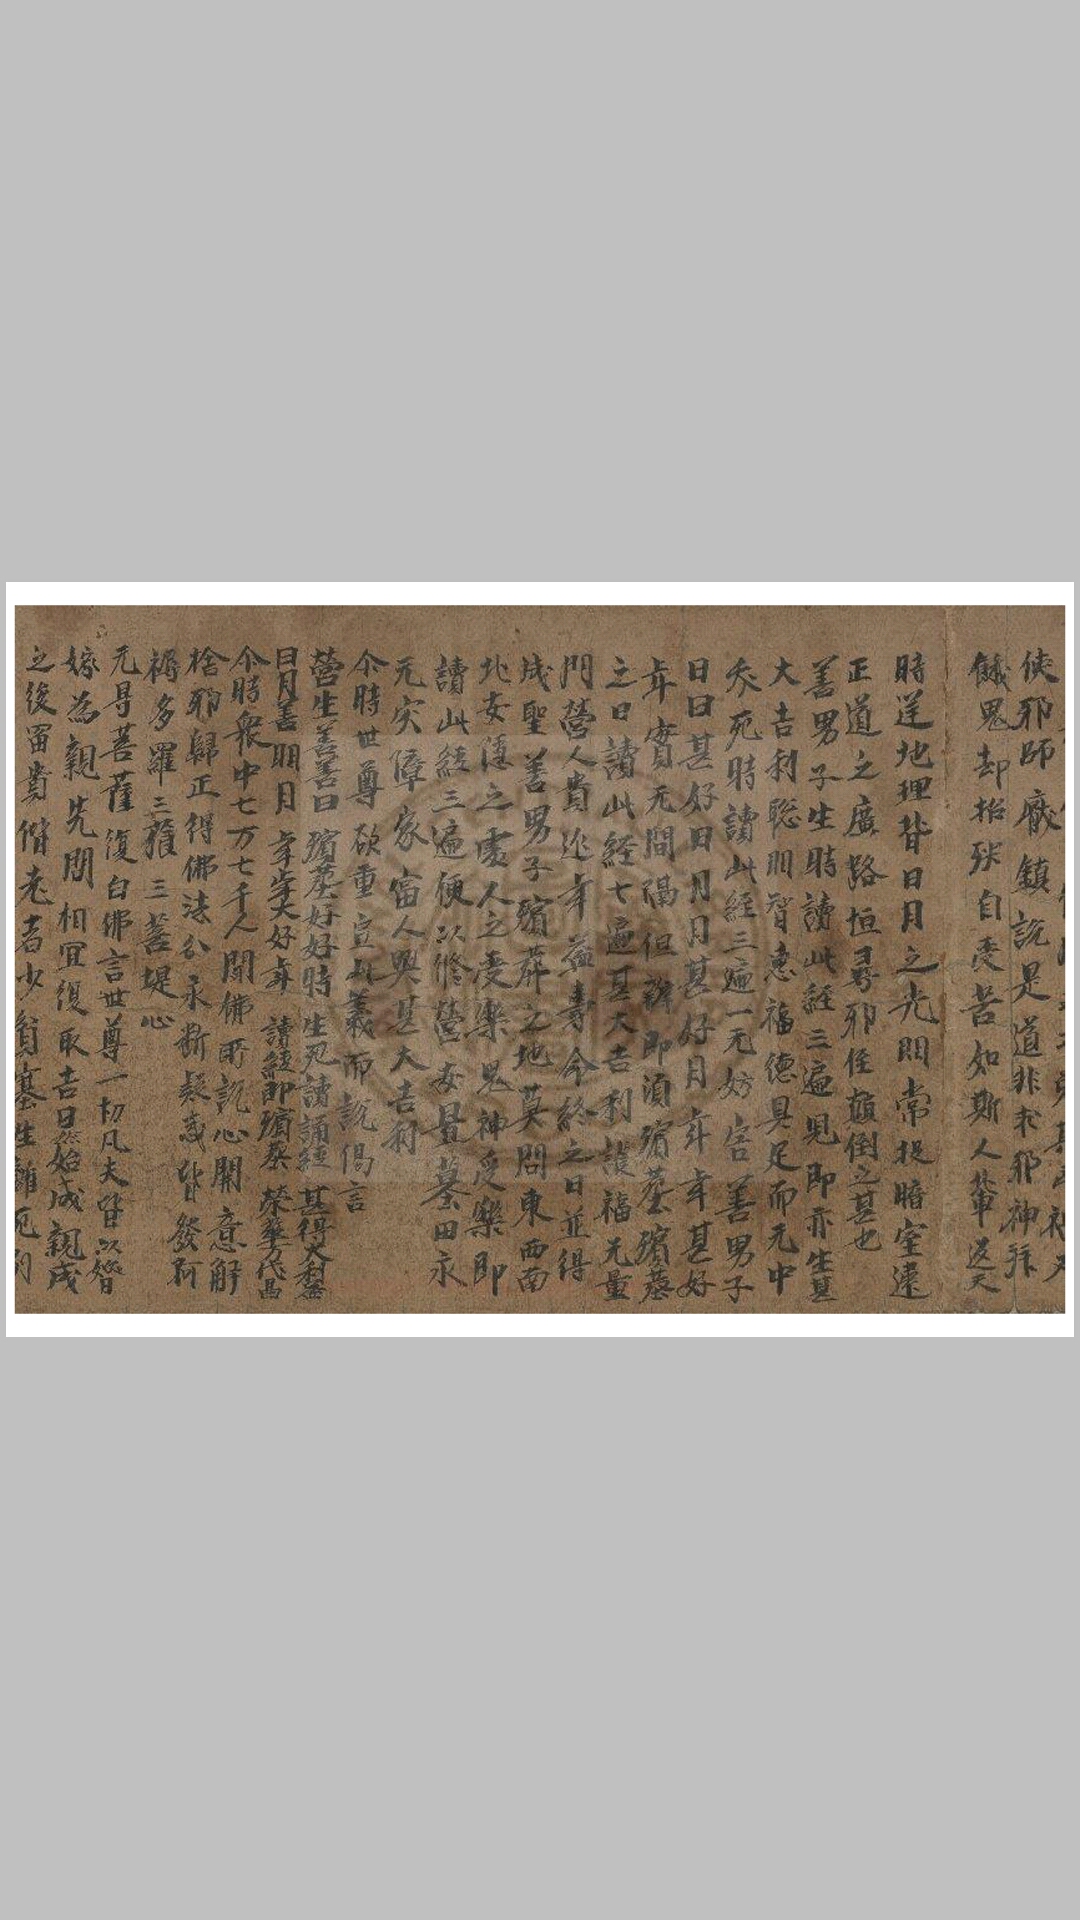 使邪師厭鎮說是道非求邪神拜
餓鬼却招殃自受苦如斯人輩返天
時逆地理背日月之光明常投暗室違
正道之廣路恒尋邪徑顛倒之甚也
善男子生時讀此經三遍兒即亦生甚
大吉利聡明智惠福德具足而无中
夭死時讀此經三遍一无妨害善男子
日日甚好日月月甚好月年年甚好
年實无間隔但辦即須殯墓殯墓
之日讀此經七遍甚大吉利護福无量
門營人貴延年益壽命終之日並得
成聖善男子殯葬之地莫問東西南
北安隱之處人之愛樂鬼神受樂即
讀此經三遍便以修營安置墓田永
无灾障家富人興甚大吉利
尒時世尊欲重宣此義而說偈言
營生善善日 殯墓好好時 生死讀誦經 甚得大利
日月善明月 年年大好年 讀經即殯葬 榮華万代昌
尒時衆中七万七千人聞佛所說心開意解
捨邪歸正得佛法分永断疑惑皆發阿
褥多羅三三菩堤心
无导菩薩復白佛言世尊一切凡夫皆以㛰
嫁為親先問相宜復取吉日然始成親成
之後冨貴偕老者少貧生離死